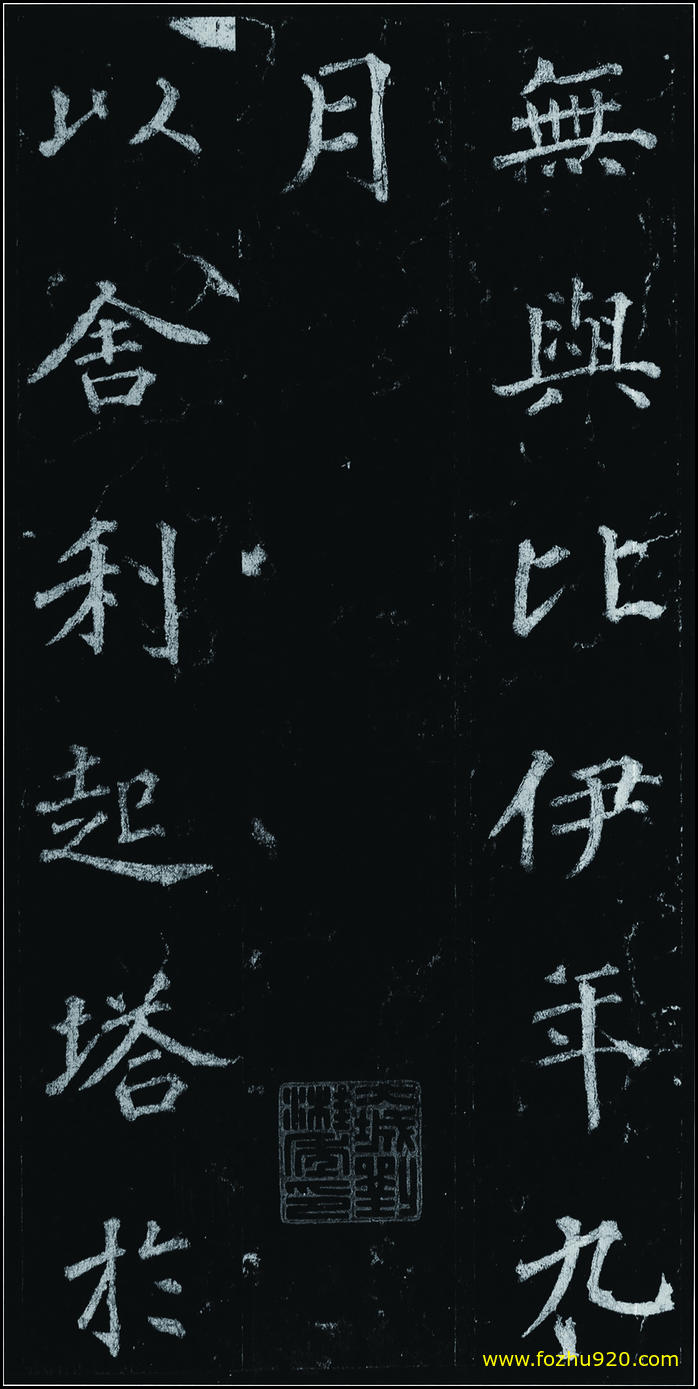 無與比伊年九
月
以舍利起塔於
www.fozhu920.com